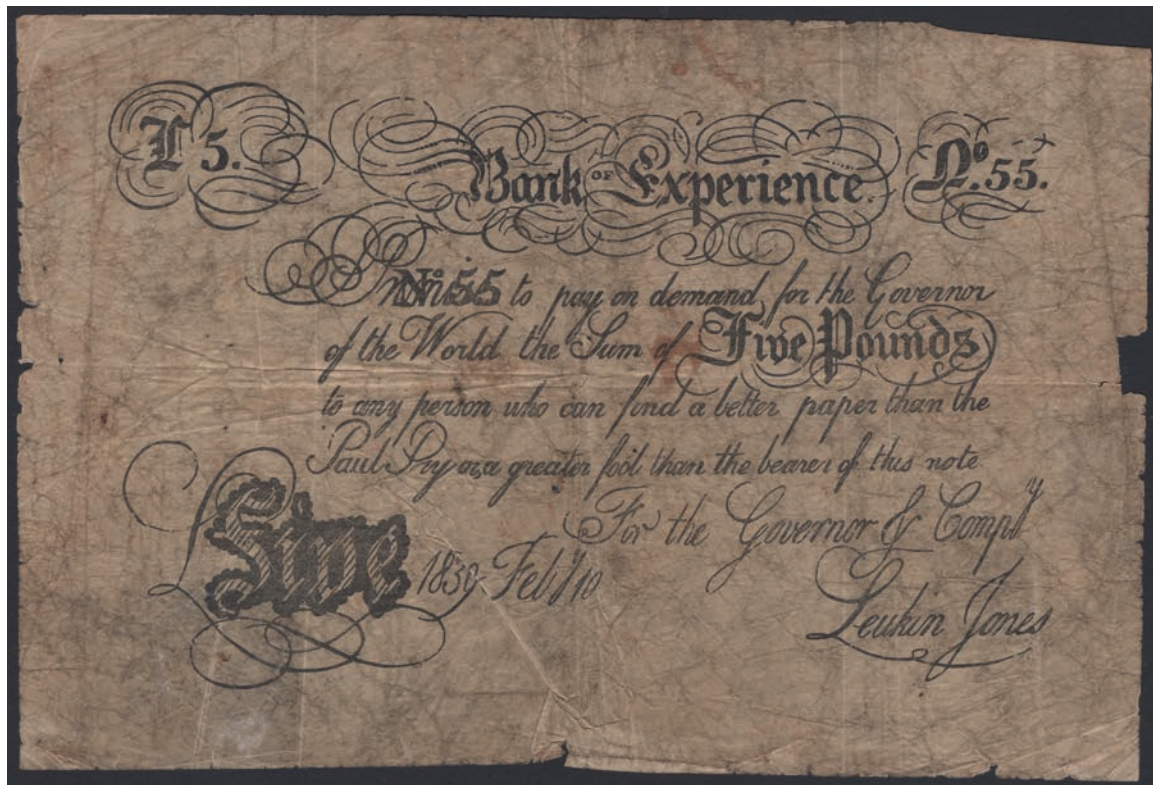 £ 5. Bank OF Experience. No. 55.
No 55 to pay on demand, for the Governor
of the World the Sum of Five Pounds
to any person who can find a better paper than the
Paul Pry or a greater fool than the bearer of this note
For the Governor & Compy
Five 1839 Feby 10
Leukin Jones